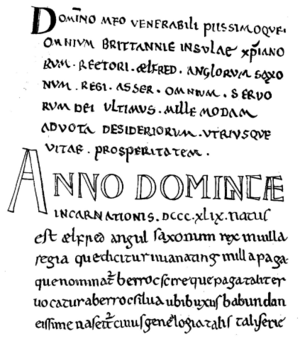 DOMĪNO MEO VENERABILI PIISSIMOQUE·
OMNIUM BRITTANNIE INSULAE XP̄IANO
RUM · RECTORI · ÆLFRED · ANGLORUM SAXO
NUM · REGI · ASSER · OMNIUM · SERVO
RUM DEI ULTIMUS · MILLE MODAM
ADVOTA DESIDERIORUM · UTRIUSQUE
VITAE · PROSPERITATEM ·
ANNO DOMINICÆ
INCARNATIONIS · DCCC · XLIX · natus
est ælfred angul saxonum rex inuilla
regia quedicitur uuanating inilla paga
que nominat᷑ berrocscire que paga taliter
uocatur aberrocsilua ubi buxus habundan
tissime nascit᷑ cuius genelogia talis taliserie